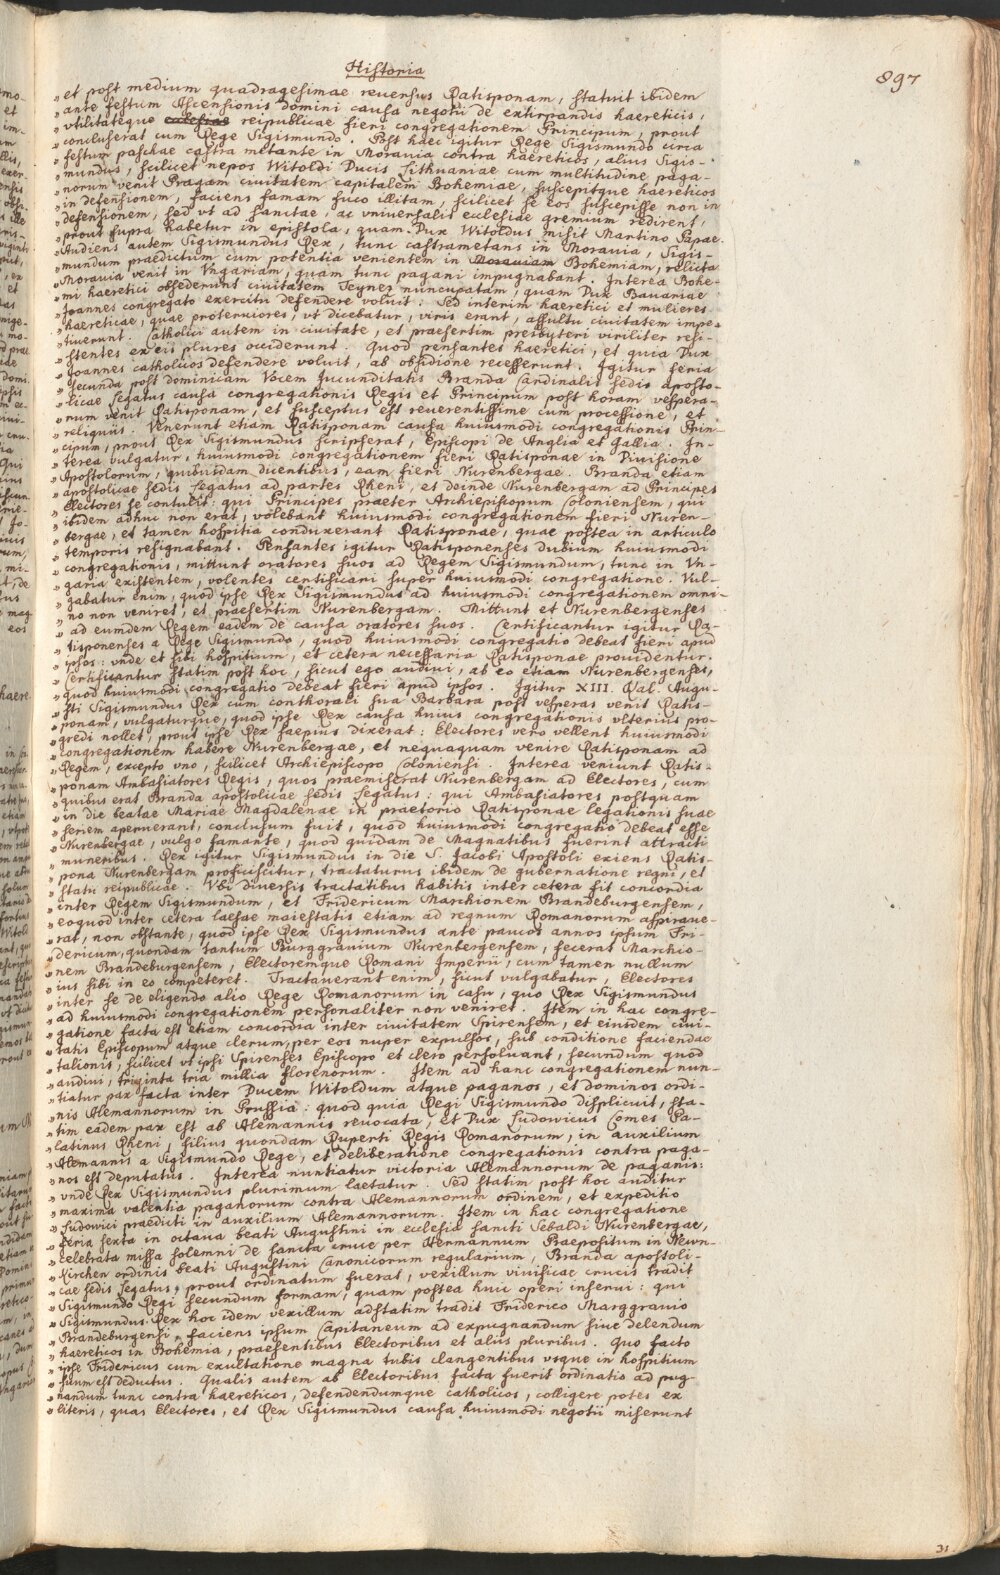 Historia
897
„ et post medium quadragesimae reuersus Ratisponam, statuit ibidem
„ ante festum Ascensionis domini causa negotii de extirpandis haereticis,
„ vtilitateque ecclesiae reipublicae fieri congregationem Principum, prout
„ concluserat cum Rege Sigismundo. Post haec igitur Rege Sigismundo circa
„ festum paschae castra metante in Morauia contra haereticos, alius Sigis-
„ mundus, scilicet nepos Witoldi Ducis Lithuaniae cum multitudine paga-
„ norum venit Pragam ciuitatem capitalem Bohemiae, suscepitque haereticos
„ in defensionem, faciens famam fuco illitam, scilicet se eos suscepisse non in
„ defensionem, sed vt ad sanctae, ac vniuersalis ecclesiae gremium redirent,
„ prout supra habetur in epistola, quam Dux Witoldus misit Martino Papae.
„ Audiens autem Sigismundus Rex, tunc castrametans in Morauia, Sigis-
„ mundum praedictum cum potentia venientem in Morauiam Bohemiam, relicta
„ Morauia venit in Vngariam, quam tunc pagani impugnabant. Interea Bohe-
„ mi haeretici obsederunt ciuitatem Teyner nuncupatam, quam Dux Bauariae
„ Joannes congregato exercitu defendere voluit: Sed interim haeretici et mulieres
„ haereticae, quae proteruiores, vt dicebatur, viris erant, assultu ciuitatem impe-
„ tiuerunt. Catholici autem in ciuitate, et praesertim presbyteri viriliter resi-
„ stentes ex eis plures occiderunt. Quod pensantes haeretici, et quia Dux
„ Joannes catholicos defendere voluit, ab obsidione recesserunt. Igitur feria
„ secunda post dominicam Vocem Jucunditatis Branda Cardinalis sedis aposto-
„ licae Legatus causa congregationis Regis et Principum post horam vespera-
„ rum venit Ratisponam, et susceptus est reuerentissime cum processione, et
„ reliquiis. Venerunt etiam Ratisponam causa huiusmodi congregationis Prin-
„ cipum, prout Rex Sigismundus scripserat, Episcopi de Anglia et Gallia. In-
„ terea vulgatur, huiusmodi congregationem fieri Ratisponae in Diuisione
„ Apostolorum, quibusdam dicentibus, eam fieri Nurenbergae. Branda etiam
„ apostolicae sedis Legatus ad partes Rheni, et deinde Nurenbergam ad Principes
„ Electores se contulit: qui Principes, praeter Archiepiscopum Coloniensem, qui
„ ibidem adhuc non erat, volebant huiusmodi congregationem fieri Nuren-
„ bergae, et tamen hospitia conduxerant Ratisponae, quae postea in articulo
„ temporis resignabant. Pensantes igitur Ratisponenses dubium huiusmodi
„ congregationis, mittunt oratores suos ad Regem Sigismundum, tunc in Vn-
„ garia existentem, volentes certificari super huiusmodi congregatione. Vul-
„ gabatur enim, quod ipse Rex Sigismundus ad huiusmodi congregationem omni-
„ no non veniret, et praesertim Nurenbergam. Mittunt et Nurenbergenses
„ ad eumdem Regem eadem de causa oratores suos. Certificantur igitur Ra-
„ tisponenses a Rege Sigismundo, quod huiusmodi congregatio debeat fieri apud
„ ipsos: vnde et sibi hospitium, et cetera necessaria Ratisponae prouidentur.
„ Certificantur statim post hoc, sicut ego audiui, ab eo etiam Nurenbergenses,
„ quod huiusmodi congregatio debeat fieri apud ipsos. Igitur XIII. Cal. Augu-
„ sti Sigismundus Rex cum conthorali sua Barbara post vesperas venit Ratis-
„ ponam, vulgaturque, quod ipse Rex causa huius congregationis vlterius pro-
„ gredi nollet, prout ipse Rex saepius dixerat: Electores vero vellent huiusmodi
„ congregationem habere Nurenbergae, et nequaquam venire Ratisponam ad
„ Regem, excepto vno, scilicet Archiepiscopo Coloniensi. Interea veniunt Ratis-
„ ponam Ambasiatores Regis, quos praemiserat Nurenbergam ad Electores, cum
„ quibus erat Branda apostolicae sedis Legatus: qui Ambasiatores postquam
„ in die beatae Mariae Magdalenae in praetorio Ratisponae legationis suae
„ seriem aperuerant, conclusum fuit, quod huiusmodi congregatio debeat esse
„ Nurenbergae, vulgo famante, quod quidam de Magnatibus fuerint attracti
„ muneribus. Rex igitur Sigismundus in die S. Jacobi Apostoli exiens Ratis-
„ pona Nurenbergam proficiscitur, tractaturus ibidem de gubernatione regni, et
„ statu reipublicae. Vbi diuersis tractatibus habitis inter cetera fit concordia
„ inter Regem Sigismundum, et Fridericum Marchionem Brandeburgensem,
„ eoquod inter cetera laesae maiestatis etiam ad regnum Romanorum aspiraue-
„ rat, non obstante, quod ipse Rex Sigismundus ante paucos annos ipsum Fri-
„ dericum, quondam tantum Burggrauium Nurenbergensem, fecerat Marchio-
„ nem Brandeburgensem, Electoremque Romani Imperii, cum tamen nullum
„ ius sibi in eo competeret. Tractauerant enim, sicut vulgabatur, Electores
„ inter se de eligendo alio Rege Romanorum in casu, quo Rex Sigismundus
„ ad huiusmodi congregationem personaliter non veniret. Item in hac congre-
„ gatione facta est etiam concordia inter ciuitatem Spirensem, et eiusdem ciui-
„ tatis Episcopum atque clerum, per eos nuper expulsos, sub conditione faciendae
„ talionis, scilicet vt ipsi Spirenses Episcopo et clero persoluant, secundum quod
„ audiui, triginta tria millia florenorum. Item ad hanc congregationem nun-
„ tiatur pax facta inter Ducem Witoldum atque paganos, et dominos ordi-
„ nis Alemannorum in Prussia: quod quia Regi Sigismundo displicuit, sta-
„ tim eadem pax est ab Alemannis reuocata, et Dux Ludouicus Comes Pa-
„ latinus Rheni, filius quondam Ruperti Regis Romanorum, in auxilium
„ Alemannis a Sigismundo Rege, et deliberatione congregationis contra paga-
„ nos est deputatus. Interea nuntiatur victoria Alemannorum de paganis:
„ vnde Rex Sigismundus plurimum laetatur. Sed statim post hoc auditur
„ maxima valentia paganorum contra Alemannorum ordinem, et expeditio
„ Ludouici praedicti in auxilium Alemannorum. Item in hac congregatione
„ feria sexta in octaua beati Augustini in ecclesia sancti Sebaldi Nurenbergae,
„ celebrata missa solemni de sancta cruce per Hermannum Praepositum in Newn-
„ kirchen ordinis beati Augustini Canonicorum regularium, Branda apostoli-
„ cae sedis Legatus, prout ordinatum fuerat, vexillum viuificae crucis tradit
„ Sigismundo Regi secundum formam, quam postea huic operi inserui: qui
„ Sigismundus Rex hoc idem vexillum adstatim tradit Friderico Marggrauio
„ Brandeburgensi, faciens ipsum Capitaneum ad expugnandum siue delendum
„ haereticos in Bohemia, praesentibus Electoribus et aliis pluribus. Quo facto
„ ipse Fridericus cum exultatione magna tubis clangentibus vsque in hospitium
„ suum est deductus. Qualis autem ab Electoribus facta fuerit ordinatio ad pug-
„ nandum tunc contra haereticos, defendendumque catholicos, colligere potes ex
„ literis, quas Electores, et Rex Sigismundus causa huiusmodi negotii miserunt